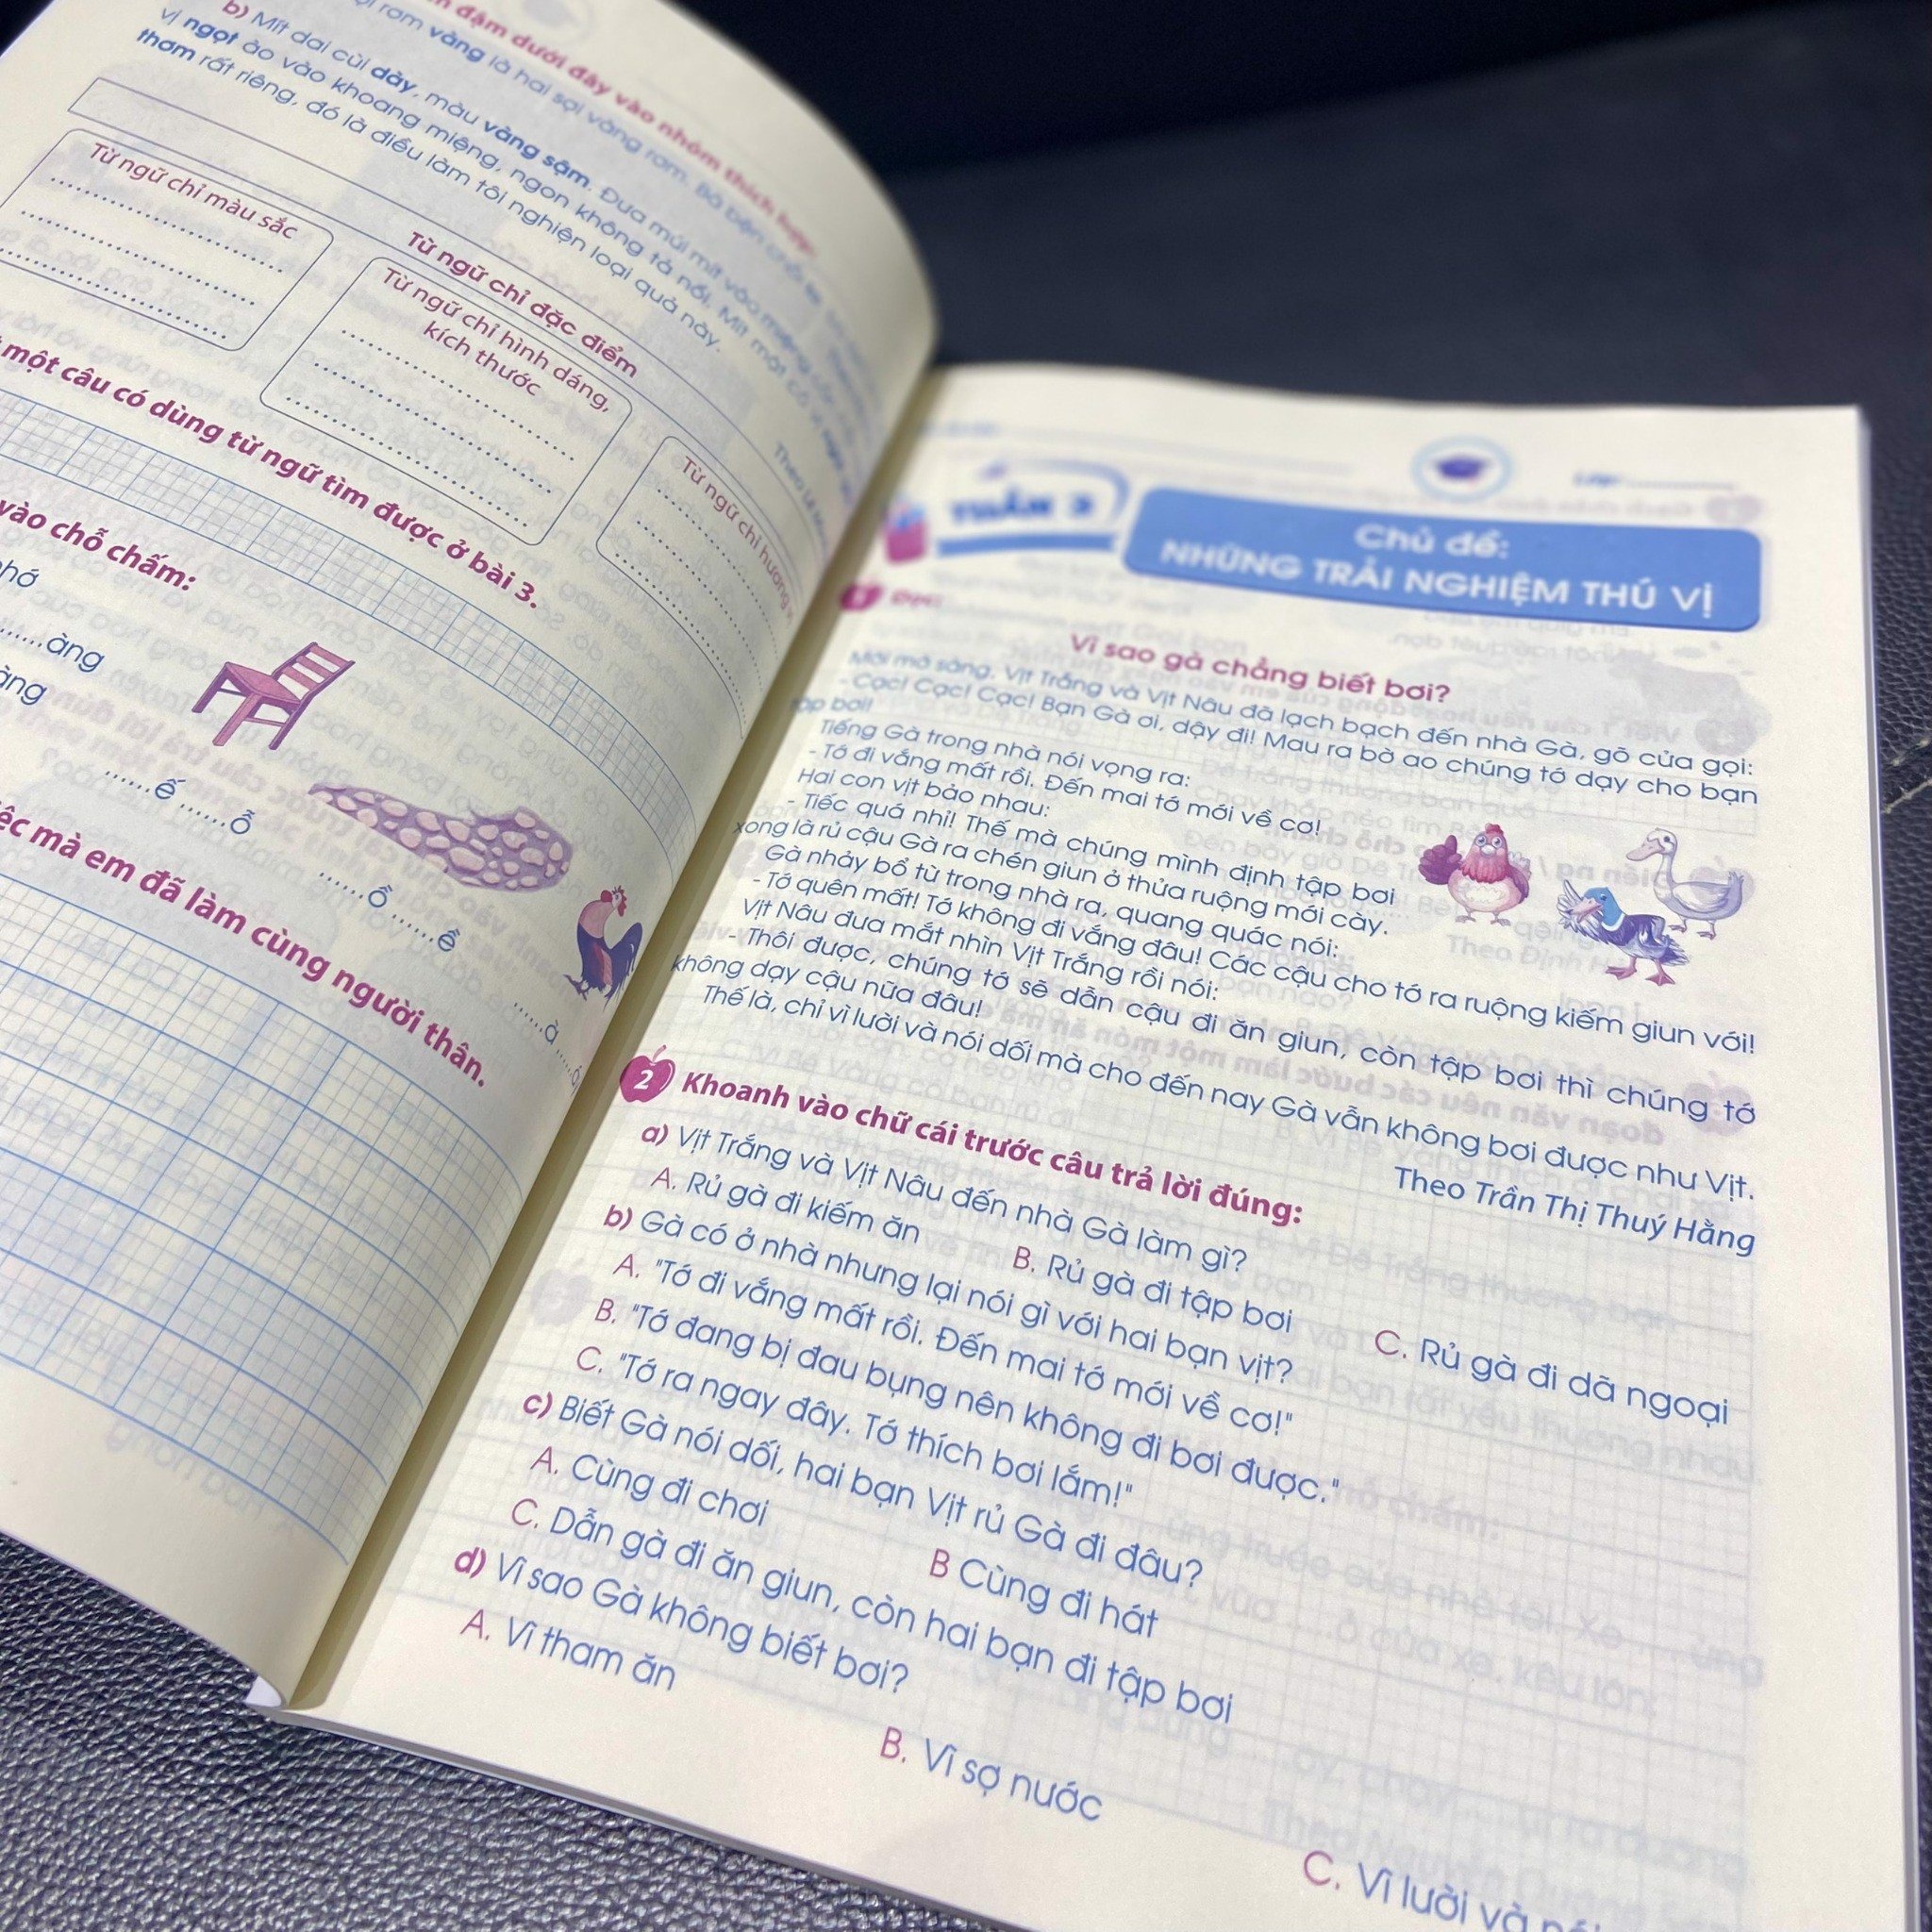 đậm dưới đây vào nhóm thích hợp:
rơm vàng là hai sợi vàng rơm. Bà bện
b) Mít dai cùi dày, màu vàng sậm. Đưa múi mít vào miệng,
vị ngọt ào vào khoang miệng, ngon không tả nổi. Mít mật có vị
thơm rất riêng, đó là điều làm tôi nghiện loại quả này.
Từ ngữ chỉ đặc điểm
Từ ngữ chỉ màu sắc
Từ ngữ chỉ hình dáng,
kích thước
Từ ngữ chỉ hương
một câu có dùng từ ngữ tìm được ở bài 3.
vào chỗ chấm:
......àng
......ế ......ỗ
......ồ ......ề
......à
mà em đã làm cùng người thân.
TUẦN 3
Chủ đề:
NHỮNG TRẢI NGHIỆM THÚ VỊ
1 Đọc:
Vì sao gà chẳng biết bơi?
Mới mờ sáng, Vịt Trắng và Vịt Nâu đã lạch bạch đến nhà Gà, gõ cửa gọi:
- Cạc! Cạc! Cạc! Bạn Gà ơi, dậy đi! Mau ra bờ ao chúng tớ dạy cho bạn
tập bơi!
Tiếng Gà trong nhà nói vọng ra:
- Tớ đi vắng mất rồi. Đến mai tớ mới về cơ!
Hai con vịt bảo nhau:
- Tiếc quá nhỉ! Thế mà chúng mình định tập bơi
xong là rủ cậu Gà ra chén giun ở thửa ruộng mới cày.
Gà nhảy bổ từ trong nhà ra, quang quác nói:
- Tớ quên mất! Tớ không đi vắng đâu! Các cậu cho tớ ra ruộng kiếm giun với!
Vịt Nâu đưa mắt nhìn Vịt Trắng rồi nói:
- Thôi được, chúng tớ sẽ dẫn cậu đi ăn giun, còn tập bơi thì chúng tớ
không dạy cậu nữa đâu!
Thế là, chỉ vì lười và nói dối mà cho đến nay Gà vẫn không bơi được như Vịt.
Theo Trần Thị Thuý Hằng
2 Khoanh vào chữ cái trước câu trả lời đúng:
a) Vịt Trắng và Vịt Nâu đến nhà Gà làm gì?
A. Rủ gà đi kiếm ăn B. Rủ gà đi tập bơi C. Rủ gà đi dã ngoại
b) Gà có ở nhà nhưng lại nói gì với hai bạn vịt?
A. "Tớ đi vắng mất rồi. Đến mai tớ mới về cơ!"
B. "Tớ đang bị đau bụng nên không đi bơi được."
C. "Tớ ra ngay đây. Tớ thích bơi lắm!"
c) Biết Gà nói dối, hai bạn Vịt rủ Gà đi đâu?
A. Cùng đi chơi B Cùng đi hát
C. Dẫn gà đi ăn giun, còn hai bạn đi tập bơi
d) Vì sao Gà không biết bơi?
A. Vì tham ăn B. Vì sợ nước C. Vì lười và